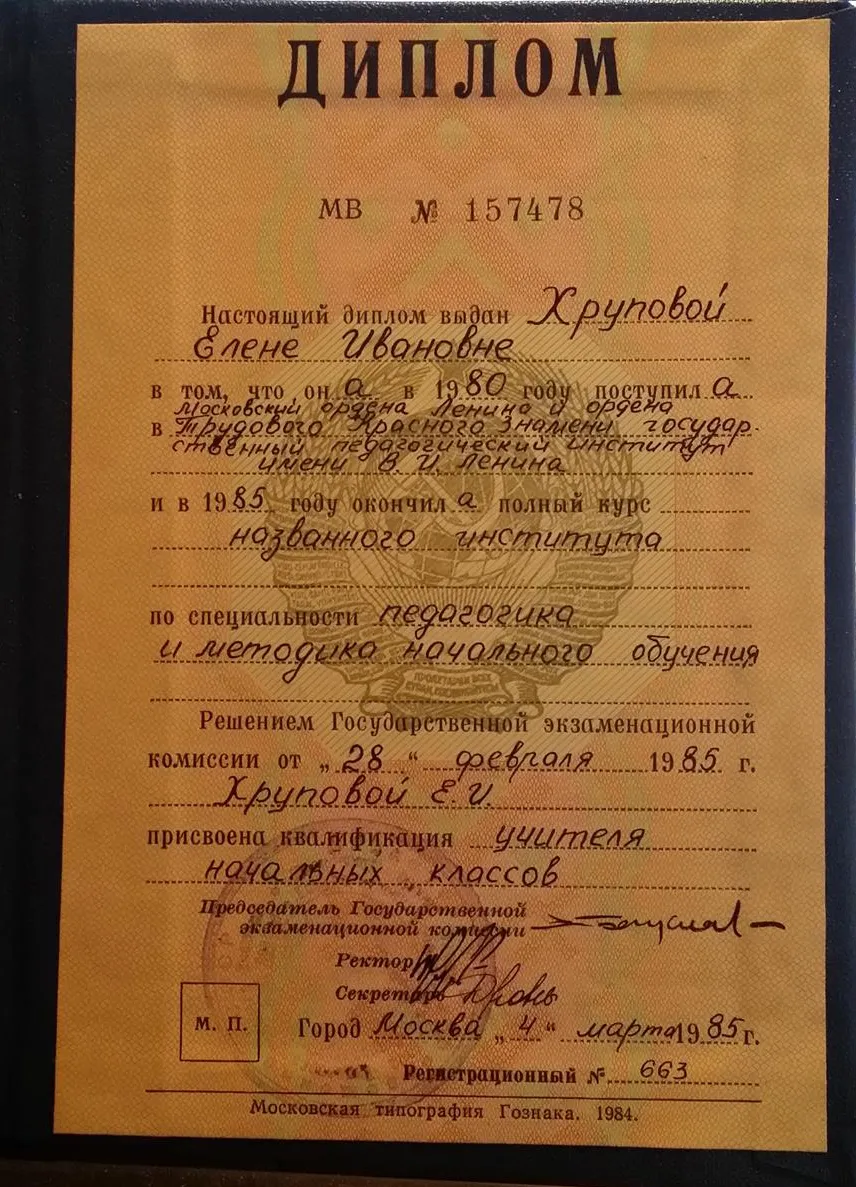 ДИПЛОМ
МВ № 157478
Настоящий диплом выдан Хруповой
Елене Ивановне
в том, что он а в 1980 году поступил а
Московский ордена Ленина и ордена
в Трудового Красного Знамени государ-
ственный педагогический институт
имени В. И. Ленина
и в 1985 году окончил а полный курс
названного института
по специальности педагогика
и методика начального обучения
ПРОЛЕТАРИИ ВСЕХ
СТРАН, СОЕДИНЯЙТЕСЬ
Решением Государственной экзаменационной
комиссии от „28“ февраля 1985 г.
Хруповой Е.И.
присвоена квалификация учителя
начальных классов
Председатель Государственной
экзаменационной комиссии
Ректор
Секретарь
М. П.
Город Москва „4“ марта 1985 г.
Регистрационный № 663
Московская типография Гознака. 1984.